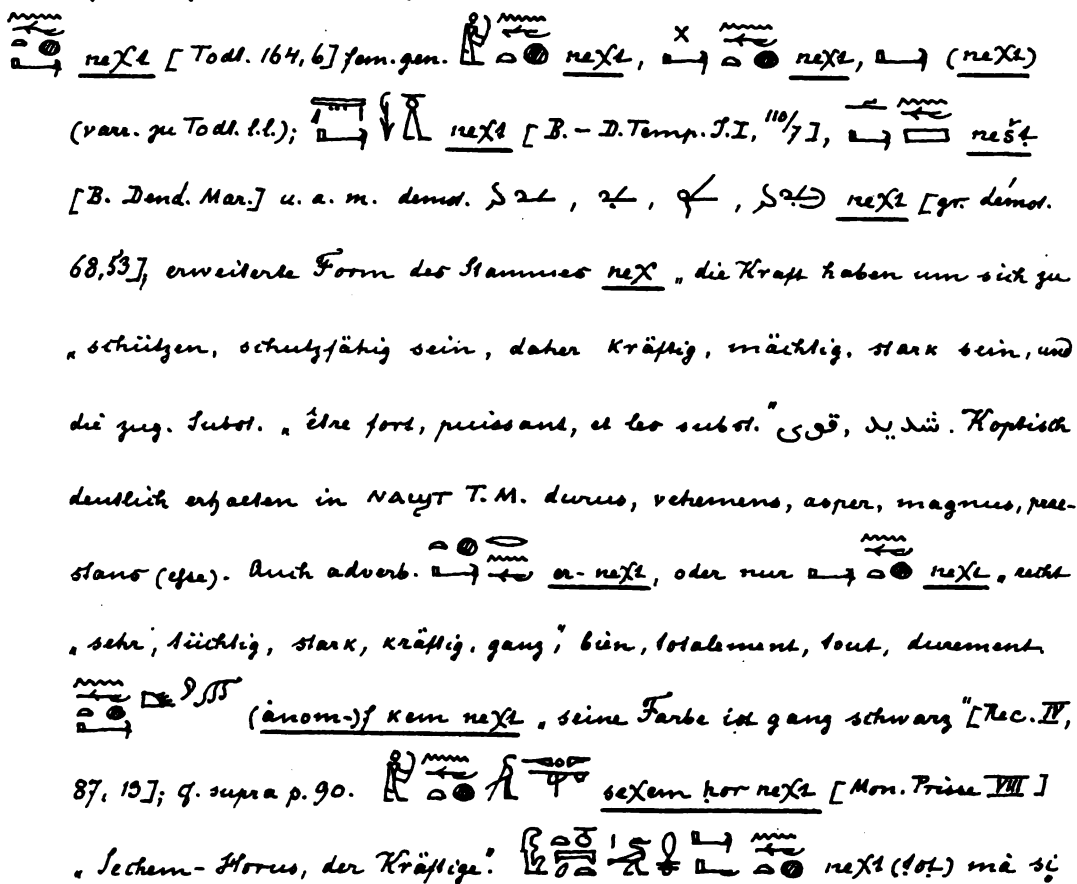 neχt [Todt. 164,6] fem. gen. neχt, neχt, (neχt)
(varr. zu Todt. l.l.); neχt [B. – D. Temp. J. I, 110/7], nešt
[B. Dend. Mar.] u. a. m. demot. neχt [gr. démot.
68,53], erweiterte Form des Stammes neχ „die Kraft haben um sich zu
„schützen, schutzfähig sein, daher kräftig, mächtig, stark sein, und
die zug. Subst. „être fort, puissant, et les subst." قوى, شديد. Koptisch
deutlich erhalten in ⲛⲁϣⲧ T. M. durus, vehemens, asper, magnus, prae-
stans (esse). Auch adverb. er-neχt, oder nur neχt „recht
„sehr, tüchtig, stark, kräftig, ganz," bien, totalement, tout, durement.
(ȧnom-)f kem neχt „seine Farbe ist ganz schwarz" [Rec. IV,
87, 13]; cf. supra p. 90. seχem ḥor neχt [Mon. Prisse VIII]
„Sechem-Horus, der Kräftige". neχt (tot) mȧ si